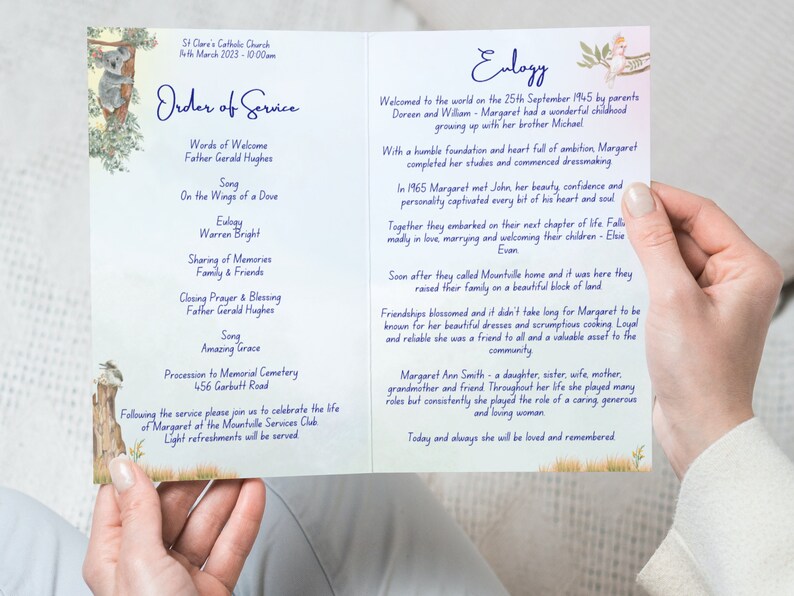 St Clare's Catholic Church
14th March 2023 - 10:00am
Order of Service
Words of Welcome
Father Gerald Hughes
Song
On the Wings of a Dove
Eulogy
Warren Bright
Sharing of Memories
Family & Friends
Closing Prayer & Blessing
Father Gerald Hughes
Song
Amazing Grace
Procession to Memorial Cemetery
456 Garbutt Road
Following the service please join us to celebrate the life
of Margaret at the Mountville Services Club.
Light refreshments will be served.
Eulogy
Welcomed to the world on the 25th September 1945 by parents
Doreen and William - Margaret had a wonderful childhood
growing up with her brother Michael.
With a humble foundation and heart full of ambition, Margaret
completed her studies and commenced dressmaking.
In 1965 Margaret met John, her beauty, confidence and
personality captivated every bit of his heart and soul.
Together they embarked on their next chapter of life. Falli
madly in love, marrying and welcoming their children - Elsie
Evan.
Soon after they called Mountville home and it was here they
raised their family on a beautiful block of land.
Friendships blossomed and it didn't take long for Margaret to be
known for her beautiful dresses and scrumptious cooking. Loyal
and reliable she was a friend to all and a valuable asset to the
community.
Margaret Ann Smith - a daughter, sister, wife, mother,
grandmother and friend. Throughout her life she played many
roles but consistently she played the role of a caring, generous
and loving woman.
Today and always she will be loved and remembered.